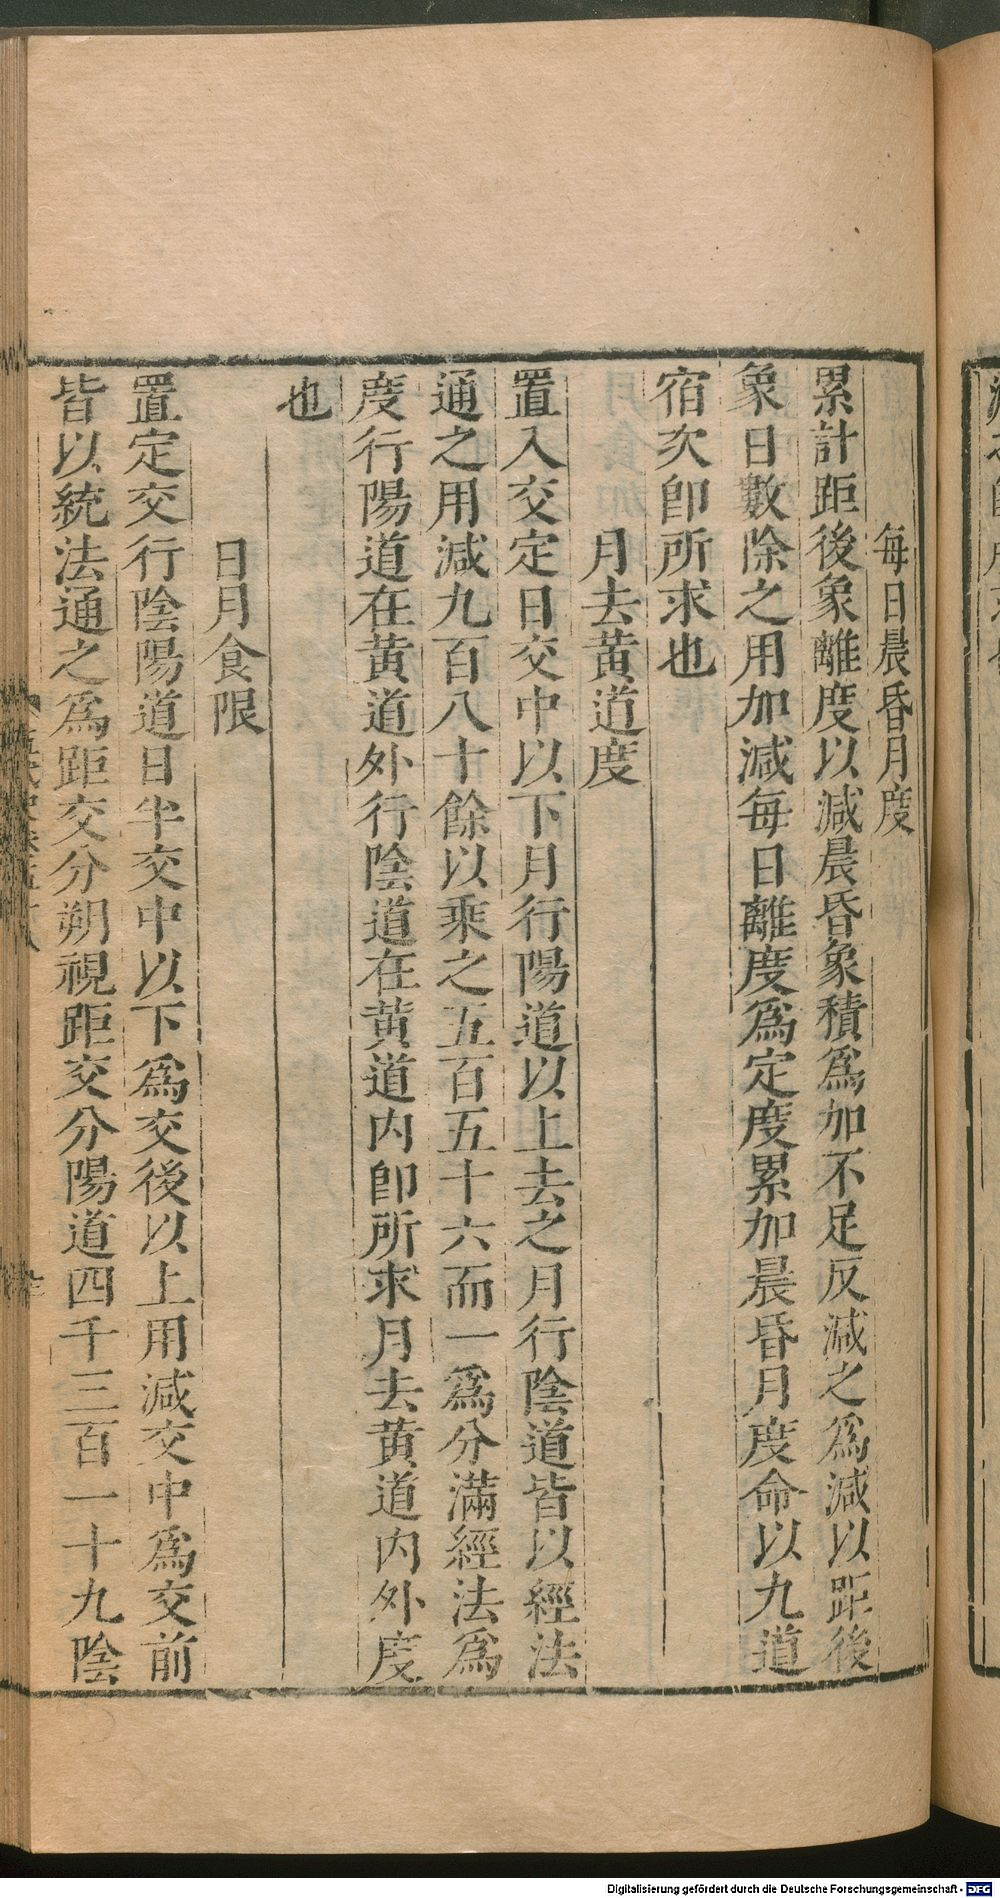 每日晨昏月度
累計距後象離度以減晨昏象積爲加不足反減之爲減以距後
象日數除之用加減每日離度爲定度累加晨昏月度命以九道
宿次卽所求也
月去黃道度
置入交定日交中以下月行陽道以上去之月行陰道皆以經法
通之用減九百八十餘以乘之五百五十六而一爲分滿經法爲
度行陽道在黃道外行陰道在黃道內卽所求月去黃道內外度
也
日月食限
置定交行陰陽道日半交中以下爲交後以上用減交中爲交前
皆以統法通之爲距交分朔視距交分陽道四千三百一十九陰
Digitalisierung gefördert durch die Deutsche Forschungsgemeinschaft - DFG